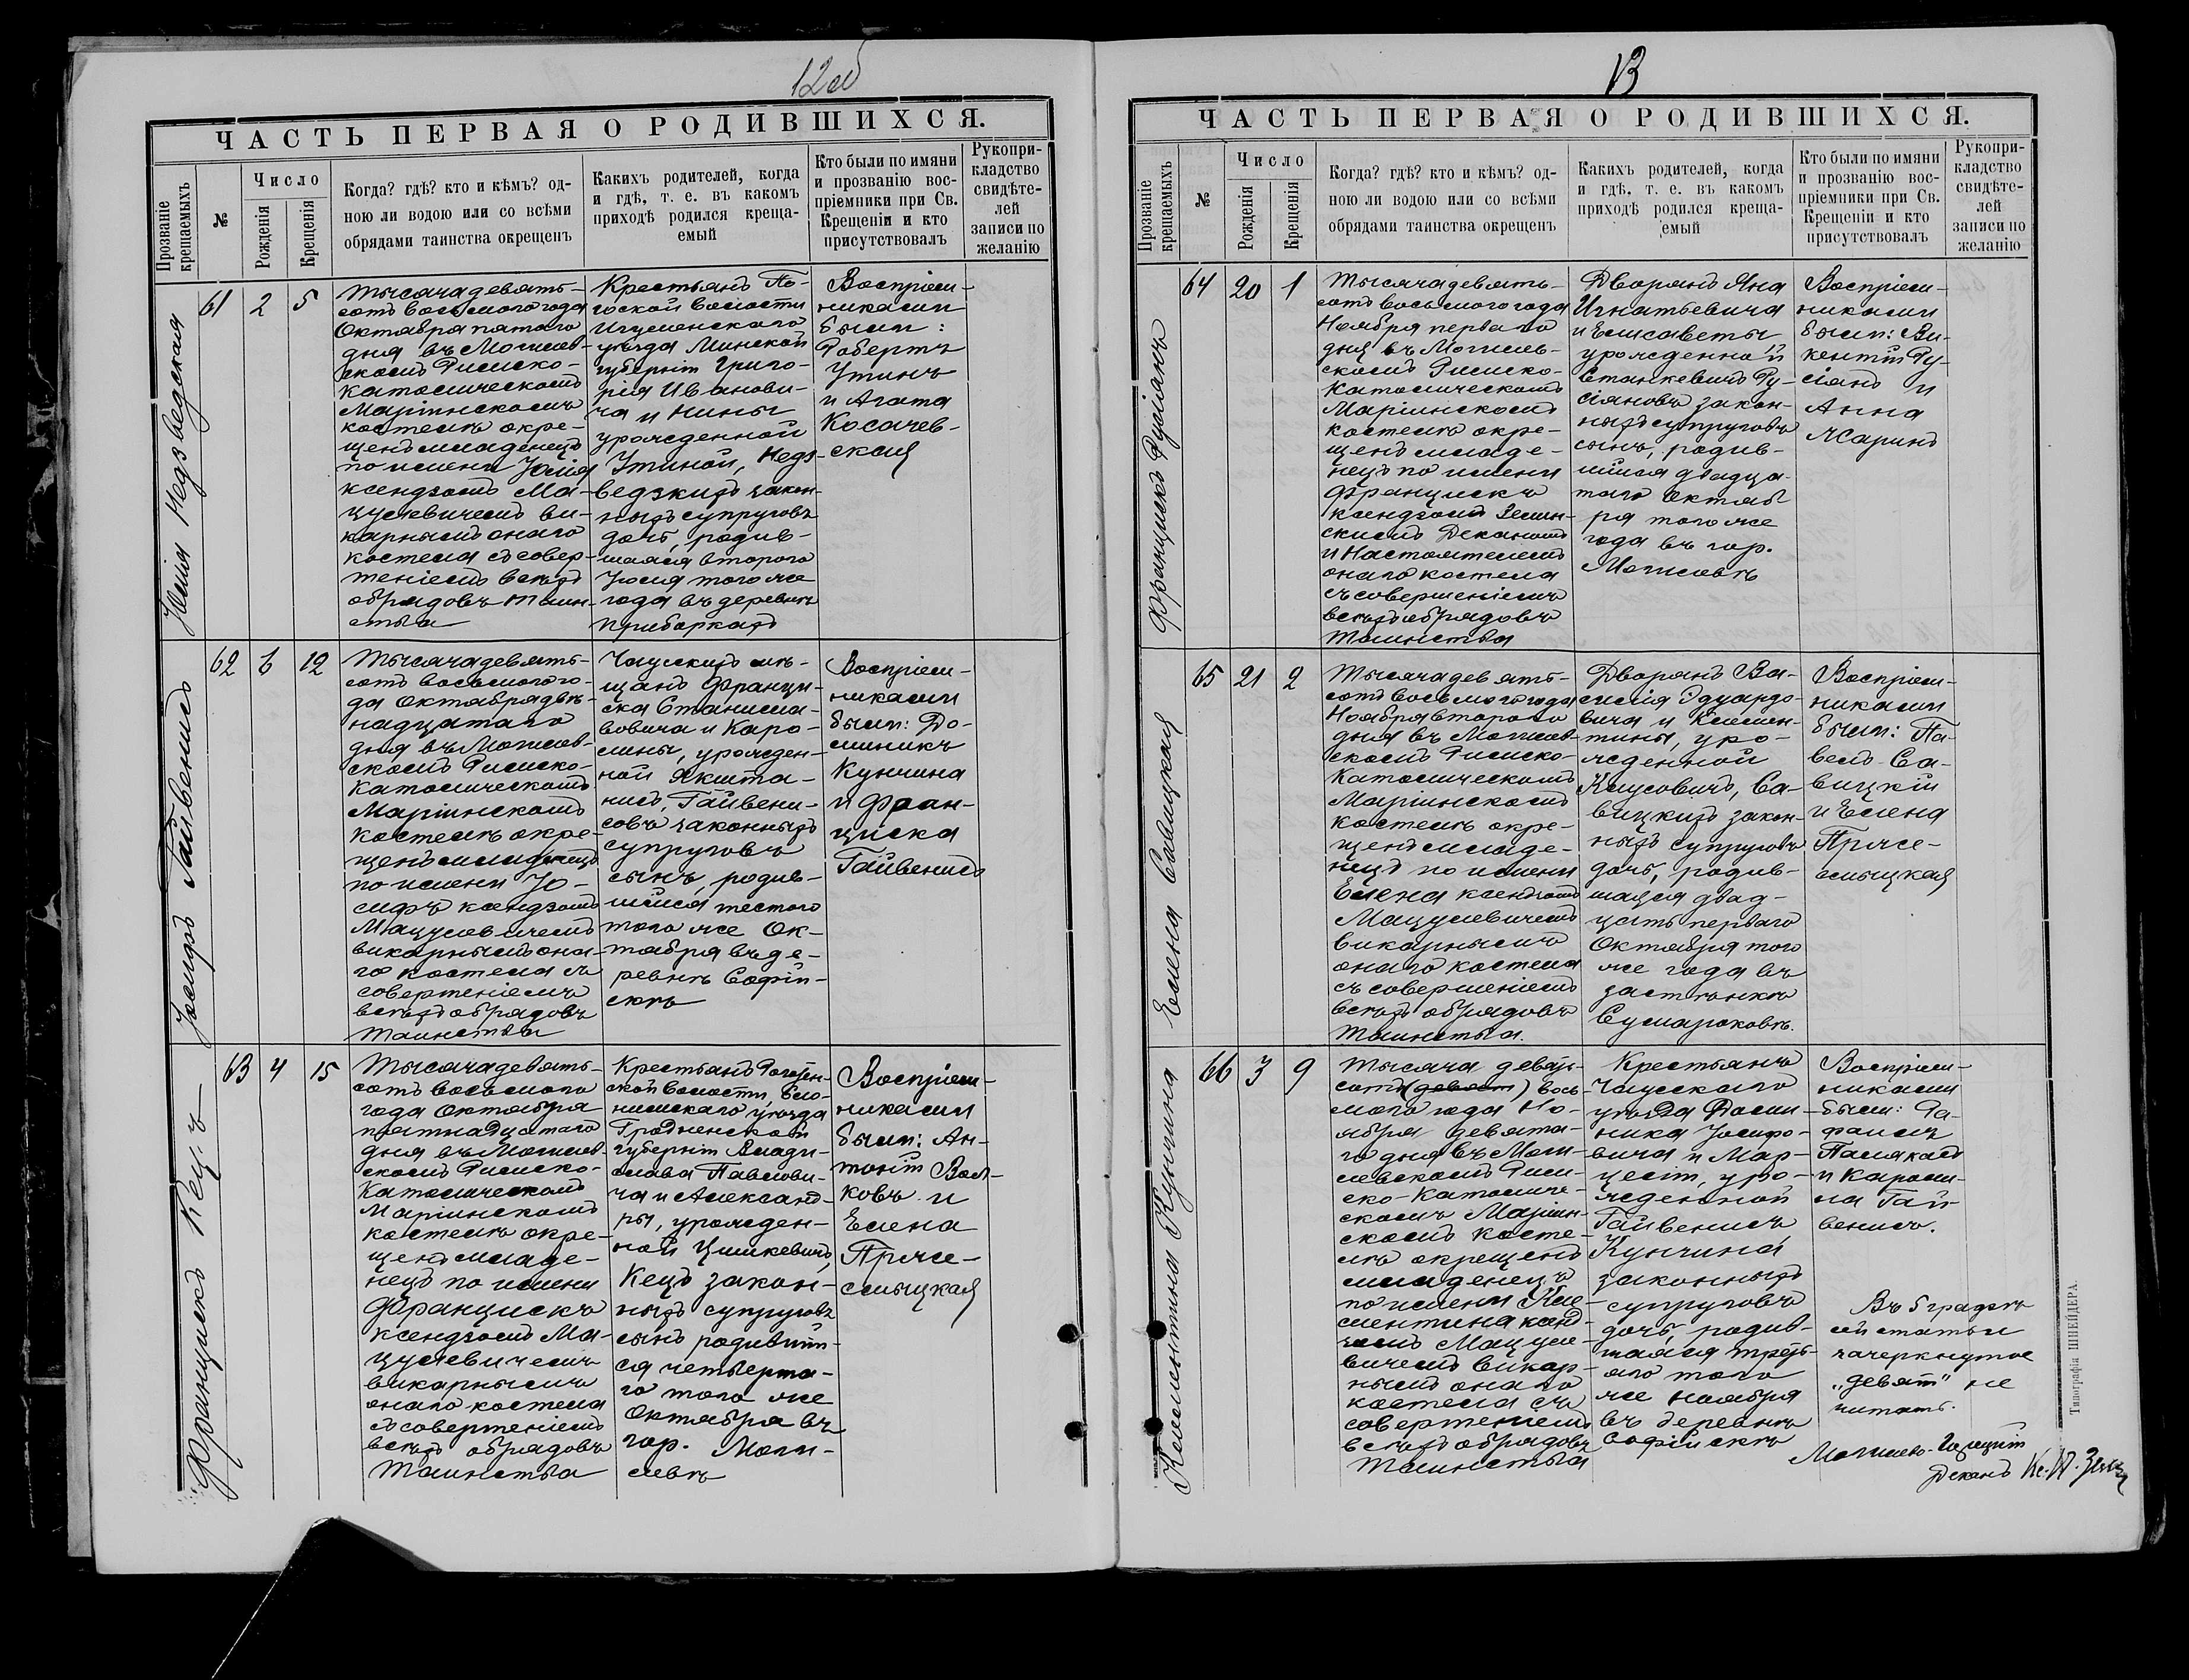 12об
ЧАСТЬ ПЕРВАЯ О РОДИВШИХСЯ.
Прозваніе крещаемыхъ
№
Число
Рожденія
Крещенія
Когда? гдѣ? кто и кѣмъ? од-
ною ли водою или со всѣми
обрядами таинства окрещенъ
Каких родителей, когда
и гдѣ, т. е. въ какомъ
приходѣ родился креща-
емый
Кто были по имяни
и прозванію вос-
пріемники при Св.
Крещеніи и кто
присутствовалъ
Рукопри-
кладство
свидѣте-
лей
записи по
желанію
Юлія Недзведзкая
61 2 5
Тысяча девять-
сотъ восьмого года
Октября пятаго
дня въ Могилев-
скомъ Римско-
Католическомъ
Маріинскомъ
костелѣ окре-
щенъ младенецъ
по имени Юлія
ксендзомъ Ма-
цулевичемъ ви-
карнымъ онаго
костела съ совер-
шеніемъ всѣхъ
обрядовъ таин-
ства
Крестьянъ По-
гоской волости
Игуменскаго
уѣзда Минской
губерніи Григо-
рія Иванови-
ча и Нины
урожденной
Утиной, Недз-
ведзкихъ закон-
ныхъ супруговъ
дочь, родив-
шаяся второго
Юлія того же
года въ деревнѣ
Приборкахъ
Воспріем-
никами
были:
Робертъ
Утинъ
и Агата
Косачев-
ская
Іосифъ Гайвенисъ
62 6 12
Тысяча девять-
сотъ восьмого го-
да Октября двѣ-
надцатаго
дня въ Могилев-
скомъ Римско-
Католическомъ
Маріинскомъ
костелѣ окре-
щенъ младенецъ
по имени Іо-
сифъ ксендзомъ
Мацулевичемъ
викарнымъ она-
го костела съ
совершеніемъ
всѣхъ обрядовъ
таинства
Чаусскихъ мѣ-
щанъ Францис-
ка Станисла-
вовича и Каро-
лины, урожден-
ной Якшта-
нисъ, Гайвени-
совъ законныхъ
супруговъ
сынъ, родив-
шійся шестого
того же Ок-
тября въ де-
ревнѣ Софій-
скѣ
Воспріем-
никами
были: До-
миникъ
Кунчина
и Фран-
циска
Гайвенисъ
Францискъ Кецъ
63 4 15
Тысяча девять-
сотъ восьмого
года Октября
пятнадцатаго
дня въ Могилев-
скомъ Римско-
Католическомъ
Маріинскомъ
костелѣ окре-
щенъ младе-
нецъ по имени
Францискъ
ксендзомъ Ма-
цулевичемъ
викарнымъ
онаго костела
съ совершеніемъ
всѣхъ обрядовъ
таинства
Крестьянъ
ской волости, Сло-
нимскаго уѣзда
Гродненской
губерніи Влади-
слава Павлови-
ча и Александ-
ры, урожден-
ной Цишкевичъ,
Кецъ закон-
ныхъ супруговъ
сынъ родившій-
ся четверта-
го того же
Октября въ
гор. Моги-
левѣ
Воспріем-
никами
были: Ан-
тоній Вол-
ковъ и
Елена
Прже-
смыцкая
13
ЧАСТЬ ПЕРВАЯ О РОДИВШИХСЯ.
Прозваніе крещаемыхъ
№
Число
Рожденія
Крещенія
Когда? гдѣ? кто и кѣмъ? од-
ною ли водою или со всѣми
обрядами таинства окрещенъ
Какихъ родителей, когда
и гдѣ, т. е. въ какомъ
приходѣ родился креща-
емый
Кто были по имяни
и прозванію вос-
пріемники при Св.
Крещеніи и кто
присутствовалъ
Рукопри-
кладство
свидѣте-
лей
записи по
желанію
Францискъ Русіанъ
64 20 1
Тысяча девять-
сотъ восьмого года
Ноября перваго
дня въ Могилев-
скомъ Римско-
Католическомъ
Маріинскомъ
костелѣ окре-
щенъ младе-
нецъ по имени
Францискъ
ксендзомъ Зелин-
скимъ Деканомъ
и Настоятелемъ
онаго костела
съ совершеніемъ
всѣхъ обрядовъ
таинства
Дворянъ Яна
Игнатьевича
и Елисаветы,
урожденной
Станкевичъ Ру-
сіановъ закон-
ныхъ супруговъ
сынъ, родив-
шійся двадца-
таго Октяб-
ря того же
года въ гор.
Могилевѣ
Воспріем-
никами
были: Ви-
кентій Ру-
сіанъ и
Анна
Жаринъ
Елена Савицкая
65 21 2
Тысяча девять-
сотъ восьмого года
Ноября второго
дня въ Могилев-
скомъ Римско-
Католическомъ
Маріинскомъ
костелѣ окре-
щенъ младе-
нецъ по имени
Елена ксендзомъ
Мацулевичемъ
викарнымъ
онаго костела
съ совершеніемъ
всѣхъ обрядовъ
таинства.
Дворянъ Ва-
силія Эдуардо-
вича и Клемен-
тины, уро-
жденной
Клусовичъ, Са-
вицкихъ закон-
ныхъ супруговъ
дочь, родив-
шаяся двад-
цать перваго
Октября того
же года въ
застѣнкѣ
Сумароковѣ.
Воспріем-
никами
были: Па-
велъ Са-
вицкій
и Елена
Прже-
смыцкая
Клементина Кунчина
66 3 9
Тысяча девять-
сотъ (девят) вось-
мого года Но-
ября девята-
го дня въ Моги-
левскомъ Рим-
ско-Католиче-
скомъ Маріин-
скомъ косте-
лѣ окрещенъ
младенецъ
по имени Кле-
ментина ксенд-
зомъ Мацуле-
вичемъ викар-
нымъ онаго
костела съ
совершеніемъ
всѣхъ обрядовъ
таинства
Крестьянъ
Чаусскаго
уѣзда Доми-
ника Іосифо-
вича и Мар-
целіи, уро-
жденной
Гайвенисъ
Кунчина
законныхъ
супруговъ
дочь, родив-
шаяся треть-
яго того
же ноября
въ деревнѣ
Софійскѣ
Воспріем-
никами
были: Ра-
фаилъ
и Кароли-
на Гай-
венисъ.
Въ 5 графѣ
сей статьи
зачеркнутое
„девят" не
читать.
Деканъ Кс.
Типографія ШНЕЙДЕРА.